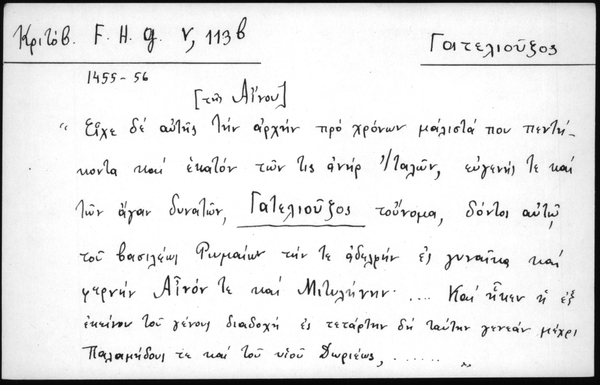 Κριτόβ. F. H. G. V, 113b
Γατελιοῦξος
1455-56
[τῆς Αἴνου]
“ Εἶχε δὲ αὐτῆς τὴν ἀρχὴν πρὸ χρόνων μάλιστά που πεντή-
κοντα καὶ ἑκατόν τῶν τις ἀνὴρ Ἰταλῶν, εὐγενής τε καὶ
τῶν ἄγαν δυνατῶν, Γατελιοῦξος τοὔνομα, δόντος αὐτῷ
τοῦ βασιλέως Ῥωμαίων τήν τε ἀδελφὴν ἐς γυναῖκα καὶ
φερνὴν Αἶνόν τε καὶ Μιτυλήνην· .... Καὶ ἧκεν ἡ ἐξ
ἐκείνου τοῦ γένους διαδοχὴ ἐς τετάρτην δὴ ταύτην γενεὰν μέχρι
Παλαμήδους τε καὶ τοῦ υἱοῦ Δωριέως, ...... „